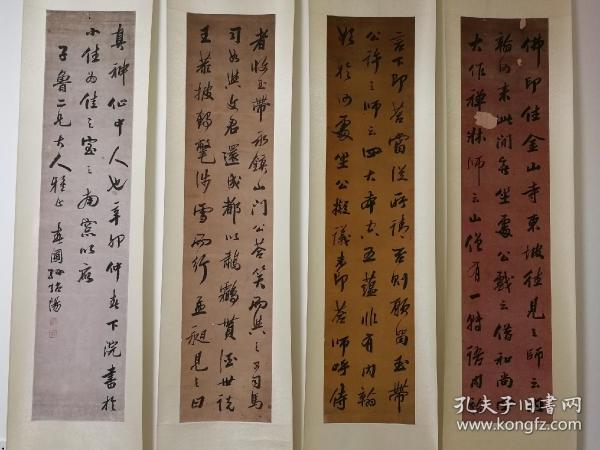 佛印住金山寺東坡往見之師云內
翰何來此間無坐處公戲云借和尚四
大作禪牀師云山僧有一轉語內翰
言下即答當從所請否則願留玉帶
公許之師云四大本空五蘊非有內翰
欲於何處坐公擬議未即答師呼侍
者收玉帶永鎮山門公笑而與之司馬
相如與文君還成都以鷫鸘貰酒世說
王恭披鶴氅涉雪而行孟昶見之曰
真神仙中人也辛卯仲春下浣書於
小住為佳之室之南窗以應
子魯二兄大人雅正 春圃孫
孔夫子旧书网
www.kongfz.com